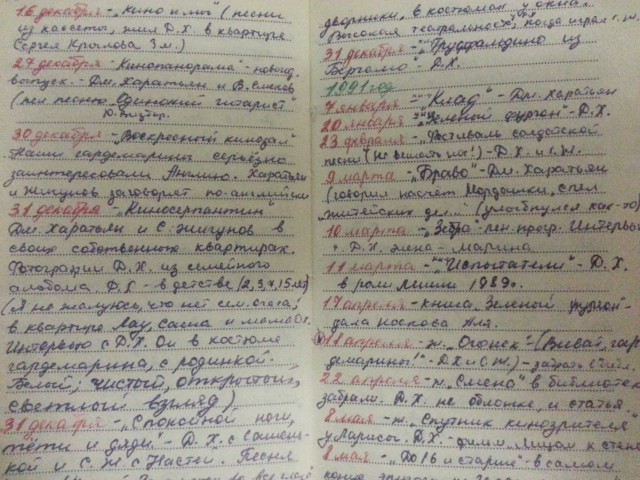 16 декабря - „Кино и мы" (песни
из кассеты, жил Д.Х. в квартире
Сергея Крылова 3 м.)
27 декабря - „Кинопанорама" - новогод.
выпуск. - Дм. Харатьян и В.
(пел песню „Одинокий гитарист"
30 декабря - „Воскресный кинозал"
Наши гардемарины серьёзно
заинтересовали Англию. Харатьян
и Жигунов заговорят по-английски
31 декабря - „Киносерпантин"
Дм. Харатьян и С. Жигунов в
своих собственных квартирах.
Фотографии Д.Х. из семейного
альбома Д.Х - в детстве (2, 3, 7, 15 лет)
(Я не жалуюсь, что нет сем. очага;
в квартире Саша и мама
Интервью с Д.Х. Он в костюме
гардемарина, с родинкой.
Белый; чистый, открытый,
светлый взгляд).
31 декабря - „Спокойной ночи,
тёти и дяди" - Д.Х. с Сашень-
кой и С.Ж с Настей. Песня
дворники, в костюмах у окна.
(Высокая театральность), когда играл с.
31 декабря - „Труффальдино из
Бергамо" - Д.Х.
1991 год
7 января - „Клад" - Дм. Харатьян
20 января - „Зелёный фургон" - Д.Х.
23 февраля - „Фестиваль солдатской
песни (Не вешать нос!) - Д.Х. и С.Ж.
9 марта - „Браво" - Дм. Харатьян
(говорил насчёт Мордашки, спел
житейских дел..) (улыбнулся как-то)
10 марта - „Зебра - лен. прогр. Интервью
с Д.Х жена - Марина
11 марта - „Испытатели" - Д.Х.
в роли Миши 1989г.
17 апреля - книга „Зелёный фургон" -
дала Носкова Аня.
11 апреля - ж. „Огонёк" - (Виват, гар-
демарины!" - Д.Х и С.Ж.) - забрать
22 апреля - ж. „Смена" в библиотеке
забрали. Д.Х. на обложке, и статья.
8 мая - ж. „Спутник кинозрителя
у Ларисы. Д.Х. - фильм „Лицом к стене
8 мая - „До 16 и старше" - в самом